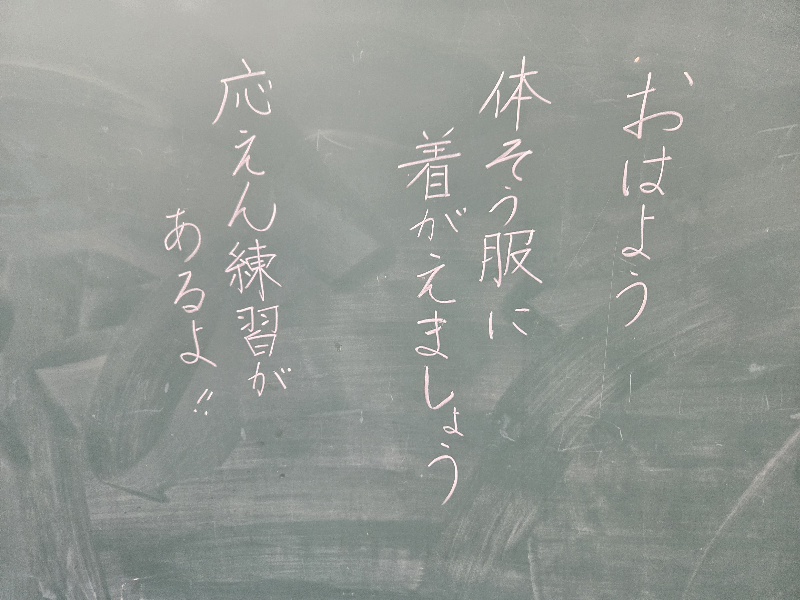 おはよう
体そう服に
着がえましょう
応えん練習が
あるよ!!